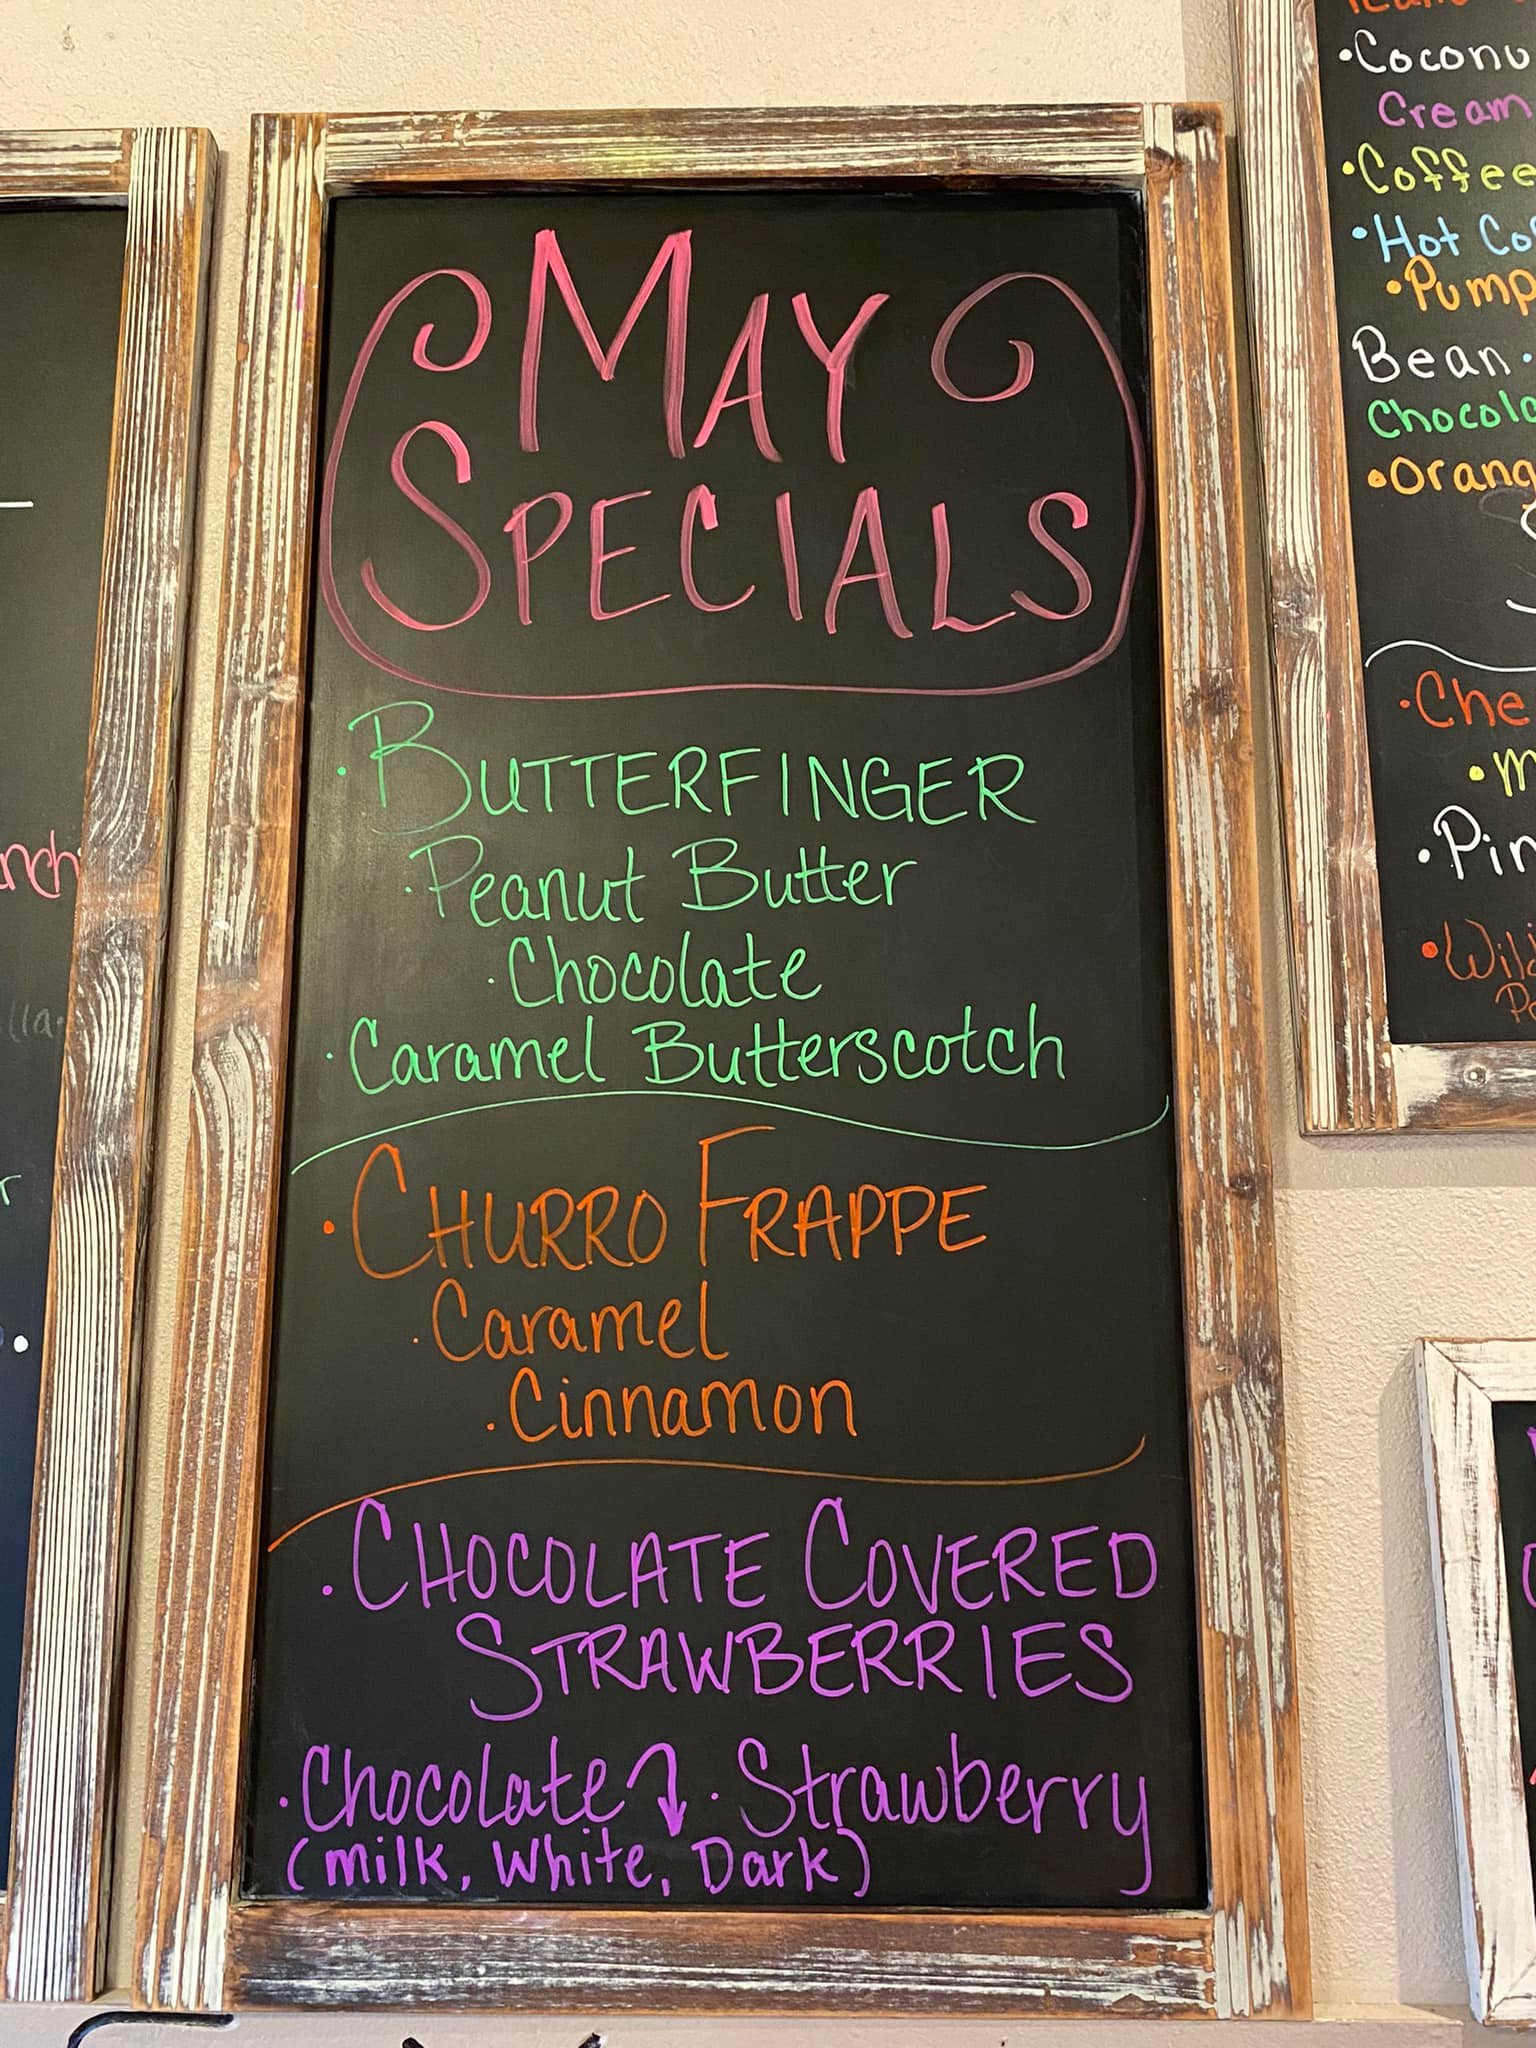 MAY
SPECIALS
• BUTTERFINGER
• Peanut Butter
• Chocolate
• Caramel Butterscotch
• CHURRO FRAPPE
• Caramel
• Cinnamon
• CHOCOLATE COVERED
STRAWBERRIES
• Chocolate • Strawberry
(milk, White, Dark)
Cream
• Coffee
• Hot
Bean •
• Orang